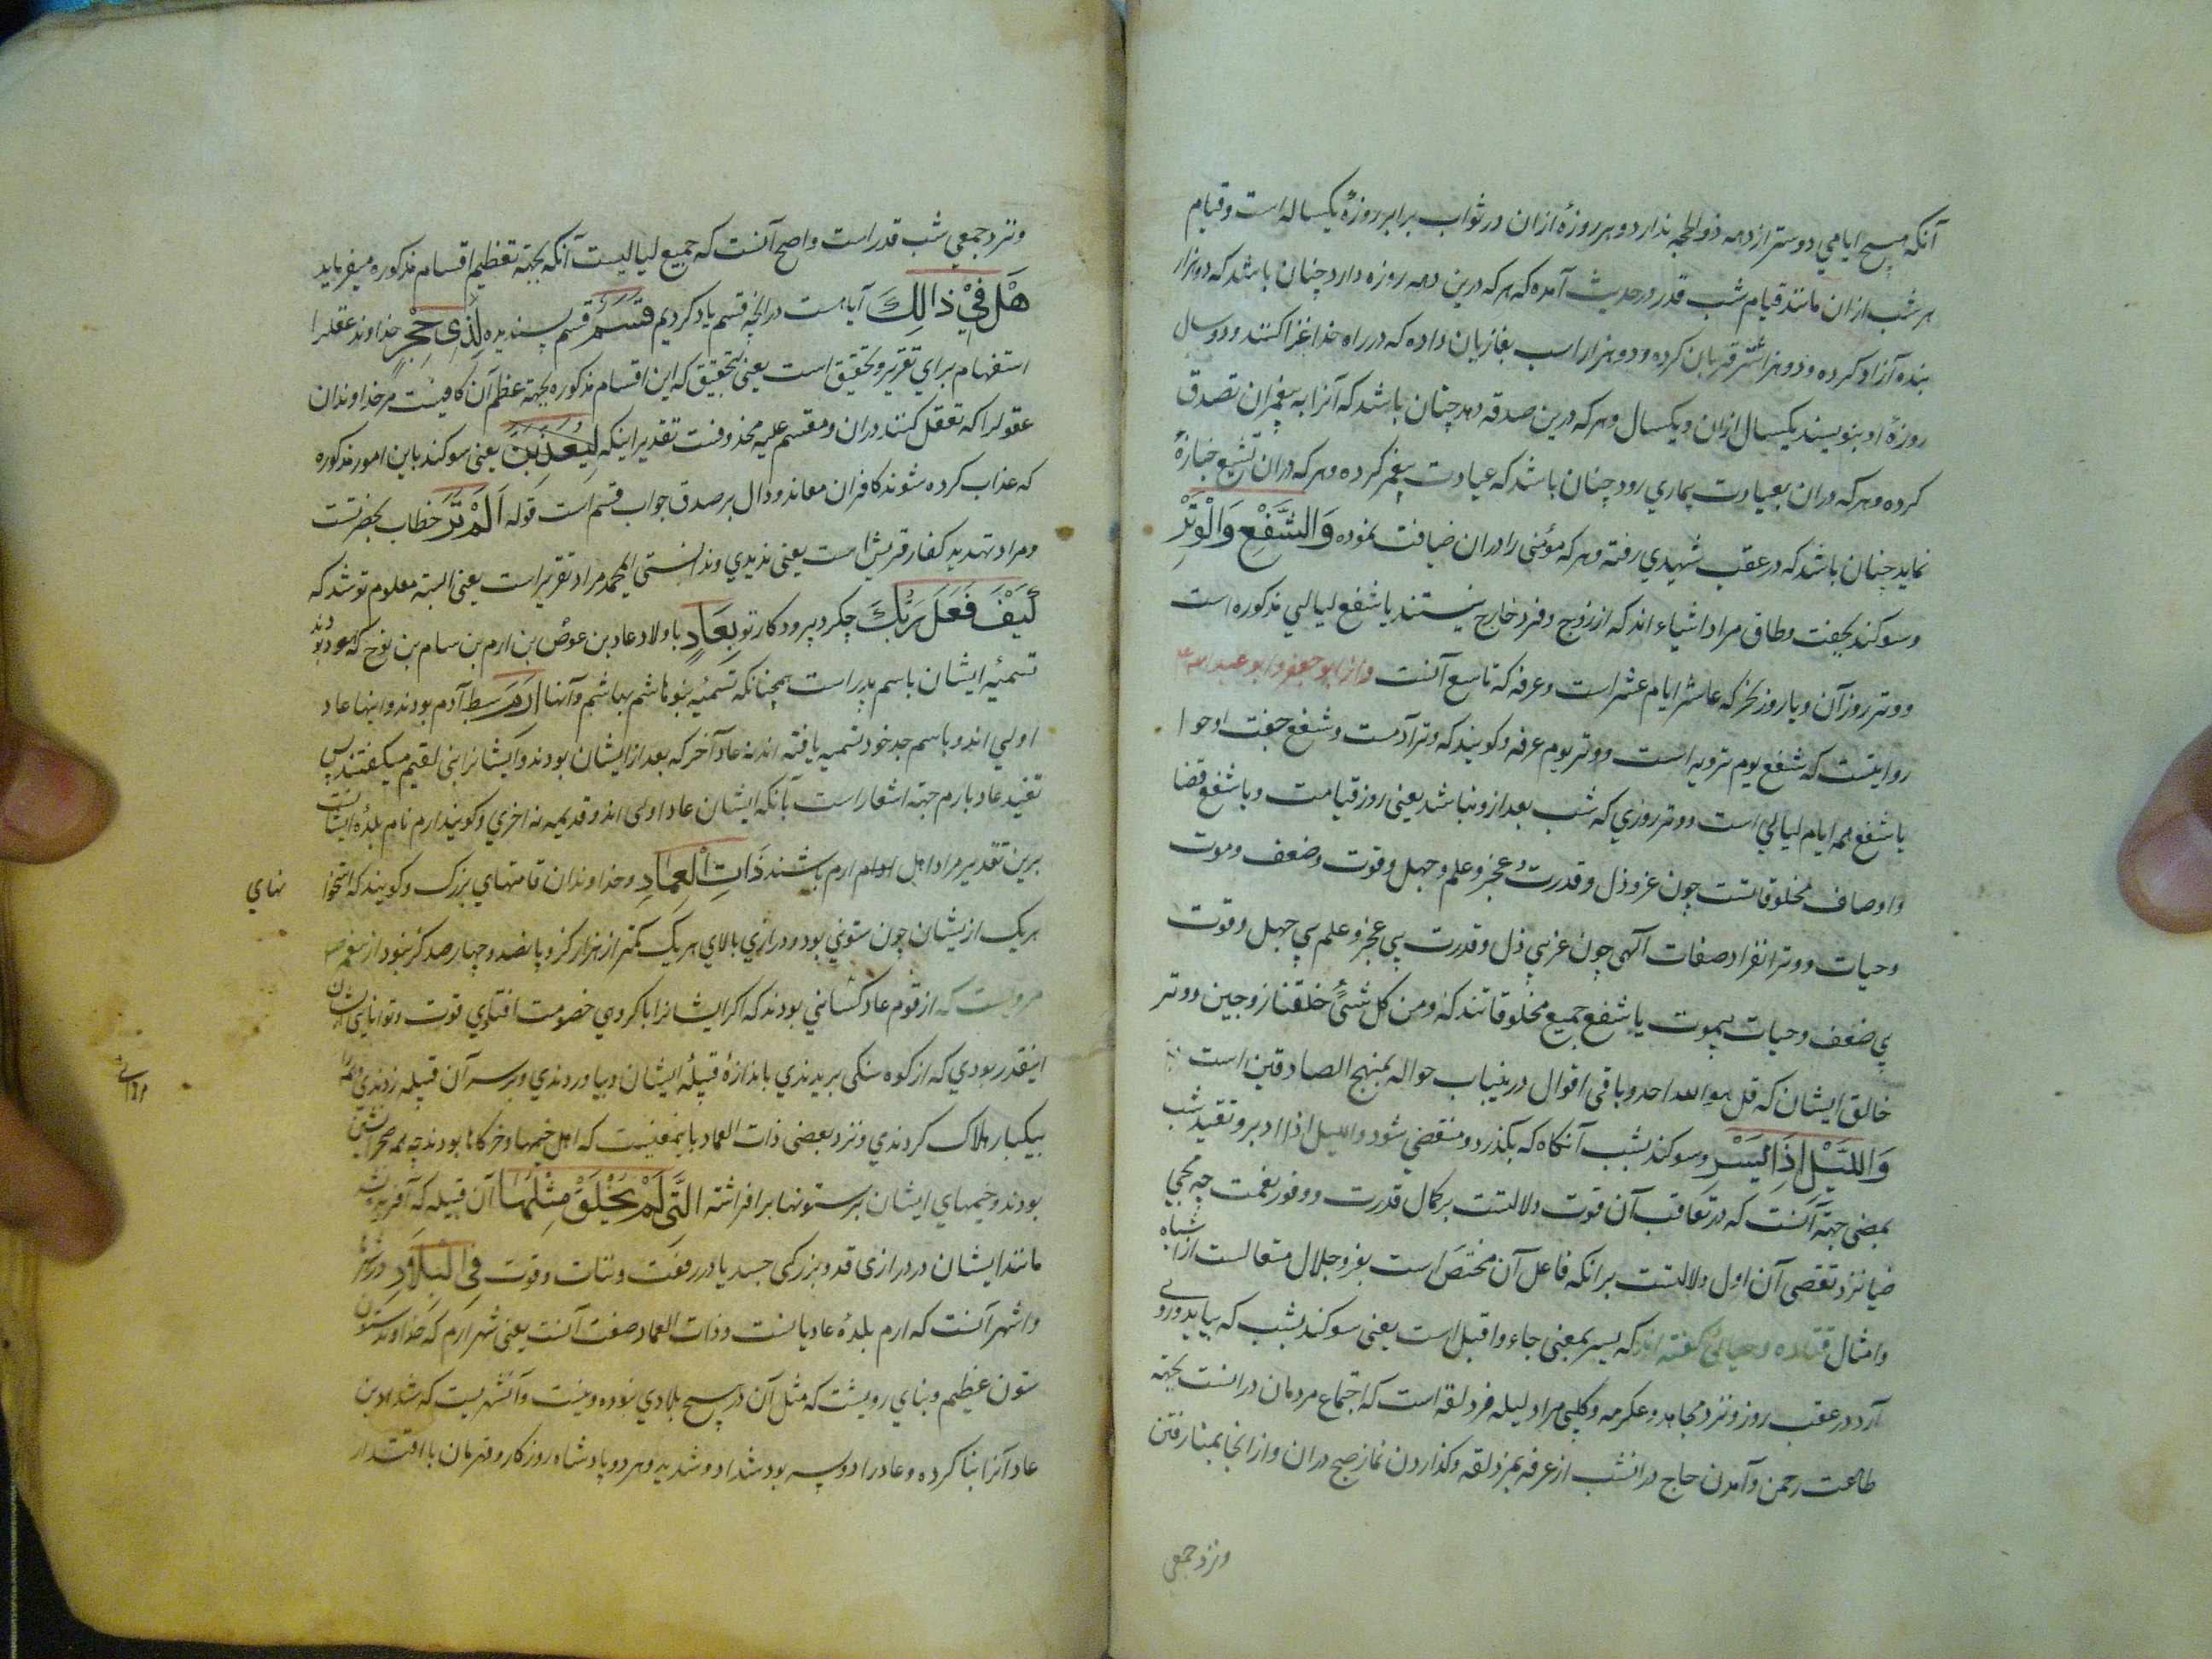 آنکه هیچ ایامی دوستر از دهه ذوالحجه ندارد و هر روزهٔ از ان در ثواب برابر روزهٔ یکساله است و قیام
هر شب از ان مانند قیام شب قدر و در حدیث آمده که هر که درین دهه روزه دارد چنان باشد که دو هزار
بنده آزاد کرده و دو هزار شتر قربان کرده و دو هزار اسب بغازیان داده که در راه خدا غزا کنند و دو سال
روزهٔ او بنویسند یکسال از ان و یکسال و هر که درین صدقه دهد چنان باشد که آنرا به پیغمبران تصدق
کرده و هر که دران بعیادت بیماری رود چنان باشد که عیادت پیغمبر کرده و هر که دران تشییع جنازهٔ
نماید چنان باشد که در عقب شهیدی رفته و هر که مؤمنی را دران ضیافت نموده وَالشَّفْعِ وَالْوَتْرِ
و سوکند بجفت و طاق مراد اشیاء اند که از زوج و فرد خارج نیستند یا شفع لیالی مذکوره است
و وتر روز آن و یا روز نحر که عاشر ایام عشر است و عرفه که تاسع آنست و از ابو جعفر و ابو عبد الله ع
روایتست که شفع یوم ترویه است و وتر یوم عرفه و کویند که وتر آدمست و شفع جفت او حوا
یا شفع همه ایام لیالی است و وتر روزی که شب بعد ازو نباشد یعنی روز قیامت و یا شفع قضا
و اوصاف مخلوقاتست چون عز و ذل و قدرت و عجز و علم و جهل و قوت و ضعف و موت
و حیات و وتر انفراد صفات آلهی چون عز بی ذل و قدرت بی عجز و علم بی جهل و قوت
بی ضعف و حیات بیموت یا شفع جمیع مخلوقاتند که و من کل شئ خلقنا زوجین و وتر
خالق ایشان که قل هو الله احد و باقی اقوال درینباب حواله بمنهج الصادقین است
وَاللَّیْلِ اِذَا یَسْرِ و سوکند بشب آنکاه که بگذرد و منقضی شود واللیل اذا ادبر و تقیید شب
بمضی جهة آنست که در تعاقب آن قوت دلالتست بر کمال قدرت و وفور نعمت چه مجی
ضیا نزد تقضی آن اول دلالتست برانکه فاعل آن مختص است بعز و جلال متعالست از اشباه
و امثال قتاده و جبائی گفته اند که یسر بمعنی جاء و اقبل است یعنی سوکند بشب که بیاید و روی
آرد در عقب روز و نزد مجاهد و عکرمه و کلبی مراد لیله مزدلقه است که اجتماع مردمان درانست بجهة
طاعت رحمن و آمدن حاج درانشب از عرفه بمزدلقه و کذاردن نماز صبح دران و از انجا بمنا رفتن
و نزد جمعی
و نزد جمعی شب قدر است و اصح آنست که جمیع لیالیست آنکه بجهة تعظیم اقسام مذکوره میفرماید
هَلْ فِیْ ذَالِكَ آیا هست درانچه قسم یاد کردیم قَسَمٌ قسم پسندیده لِذِی حِجْرٍ خداوند عقلرا
استفهام برای تقریر و تحقیق است یعنی بتحقیق که این اقسام مذکوره بجهة عظم آن کافیست مر خداوندان
عقولرا که تعقل کنند دران و مقسم علیه محذوفست تقدیر اینکه لیعذبن یعنی سوکند باین امور مذکوره
که عذاب کرده شوند کافران معاند و دال بر صدق جواب قسم است قوله اَلَمْ تَرَ خطاب بحضرتست
و مراد تهدید کفار قریش است یعنی ندیدی و ندانستی ایمحمد مراد تقریر است یعنی البته معلوم تو شد که
کَیْفَ فَعَلَ رَبُّكَ چکرد پرودکار تو بِعَادٍ با اولاد عاد بن عوص بن ارم بن سام بن نوح که هود بودند
تسمئیه ایشان باسم پدر است همچنانکه تسمئیه بنو هاشم بهاشم و آنها اِرَمَ سبط آدم بودند و اینها عاد
اولی اند و باسم جد خود تسمیه یافته اند نه عاد آخر که بعد از ایشان بودند و ایشانرا بنی لقیم میکفتند پس
تقیید عاد بارم جهة اشعار است بآنکه ایشان عاد اولی اند و قدیمه نه اخری و کویند ارم نام بلدهٔ ایشانست
برین تقدیر مراد اهل ارم باشند ذَاتِ الْعِمَادِ و خداوندان قامتهای بزرک و کویند که استخوا نهای
هر یک از یشان چون ستونی بود و درازی بالای هر یک کمتر از هزار کز و پانصد و چهار صد کز نبود از پیغمبر ص
مرویست که از قوم عاد کسانی بودند که اکر ایشانرا با کروهی خصومت افتادی قوت و توانایی ایشان
اینقدر بودی که از کوه سنکی بریدندی باندازهٔ قبیلهٔ ایشان و بیاوردندی و بر سر آن قبیله زدندی
بیکبار هلاک کردندی و نزد بعضی ذات العماد باینمعنیست که اهل خیمها و خرکاها بودند چه همه صحرا نشین
بودند و خیمهای ایشان بر ستونها برافراشته الَّتِی لَمْ یُخْلَقْ مِثْلُهَا آن قبیله که آفریده نشده
مانند ایشان در درازی قد و بزرکی جسد یا در رفعت و ثبات و قوت فِی الْبِلَادِ در شهرها
و اشهر آنست که ارم بلدهٔ عادیانست و ذات العماد صفت آنست یعنی شهر ارم که خداوند ستون
ستون عظیم و بنای رویست که مثل آن در هیچ بلادی نبوده و نیست و آنشهریست که شداد بن
عاد آنرا بنا کرده و عاد را دو پسر بود شداد و شدید و هر دو پادشاه روزکار و قهرمان با اقتدار